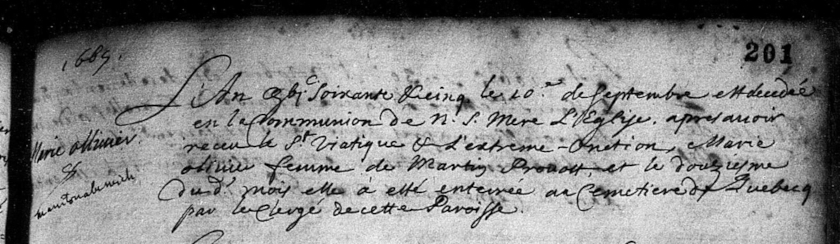 1665.
201
L'An gbj^c Soixante & cinq le 10.^e de Septembre est decedée
en la Communion de N. S. Mere L'Eglise, apres avoir
receu le S^t Viatique & L'extreme-Onction, Marie
olivie femme de Martin Prevost, et le douziesme
du d^t mois elle à esté enterrée au Cemetiere de Quebecq
par le Clergé de cette Paroisse.
Marie ollivier
&